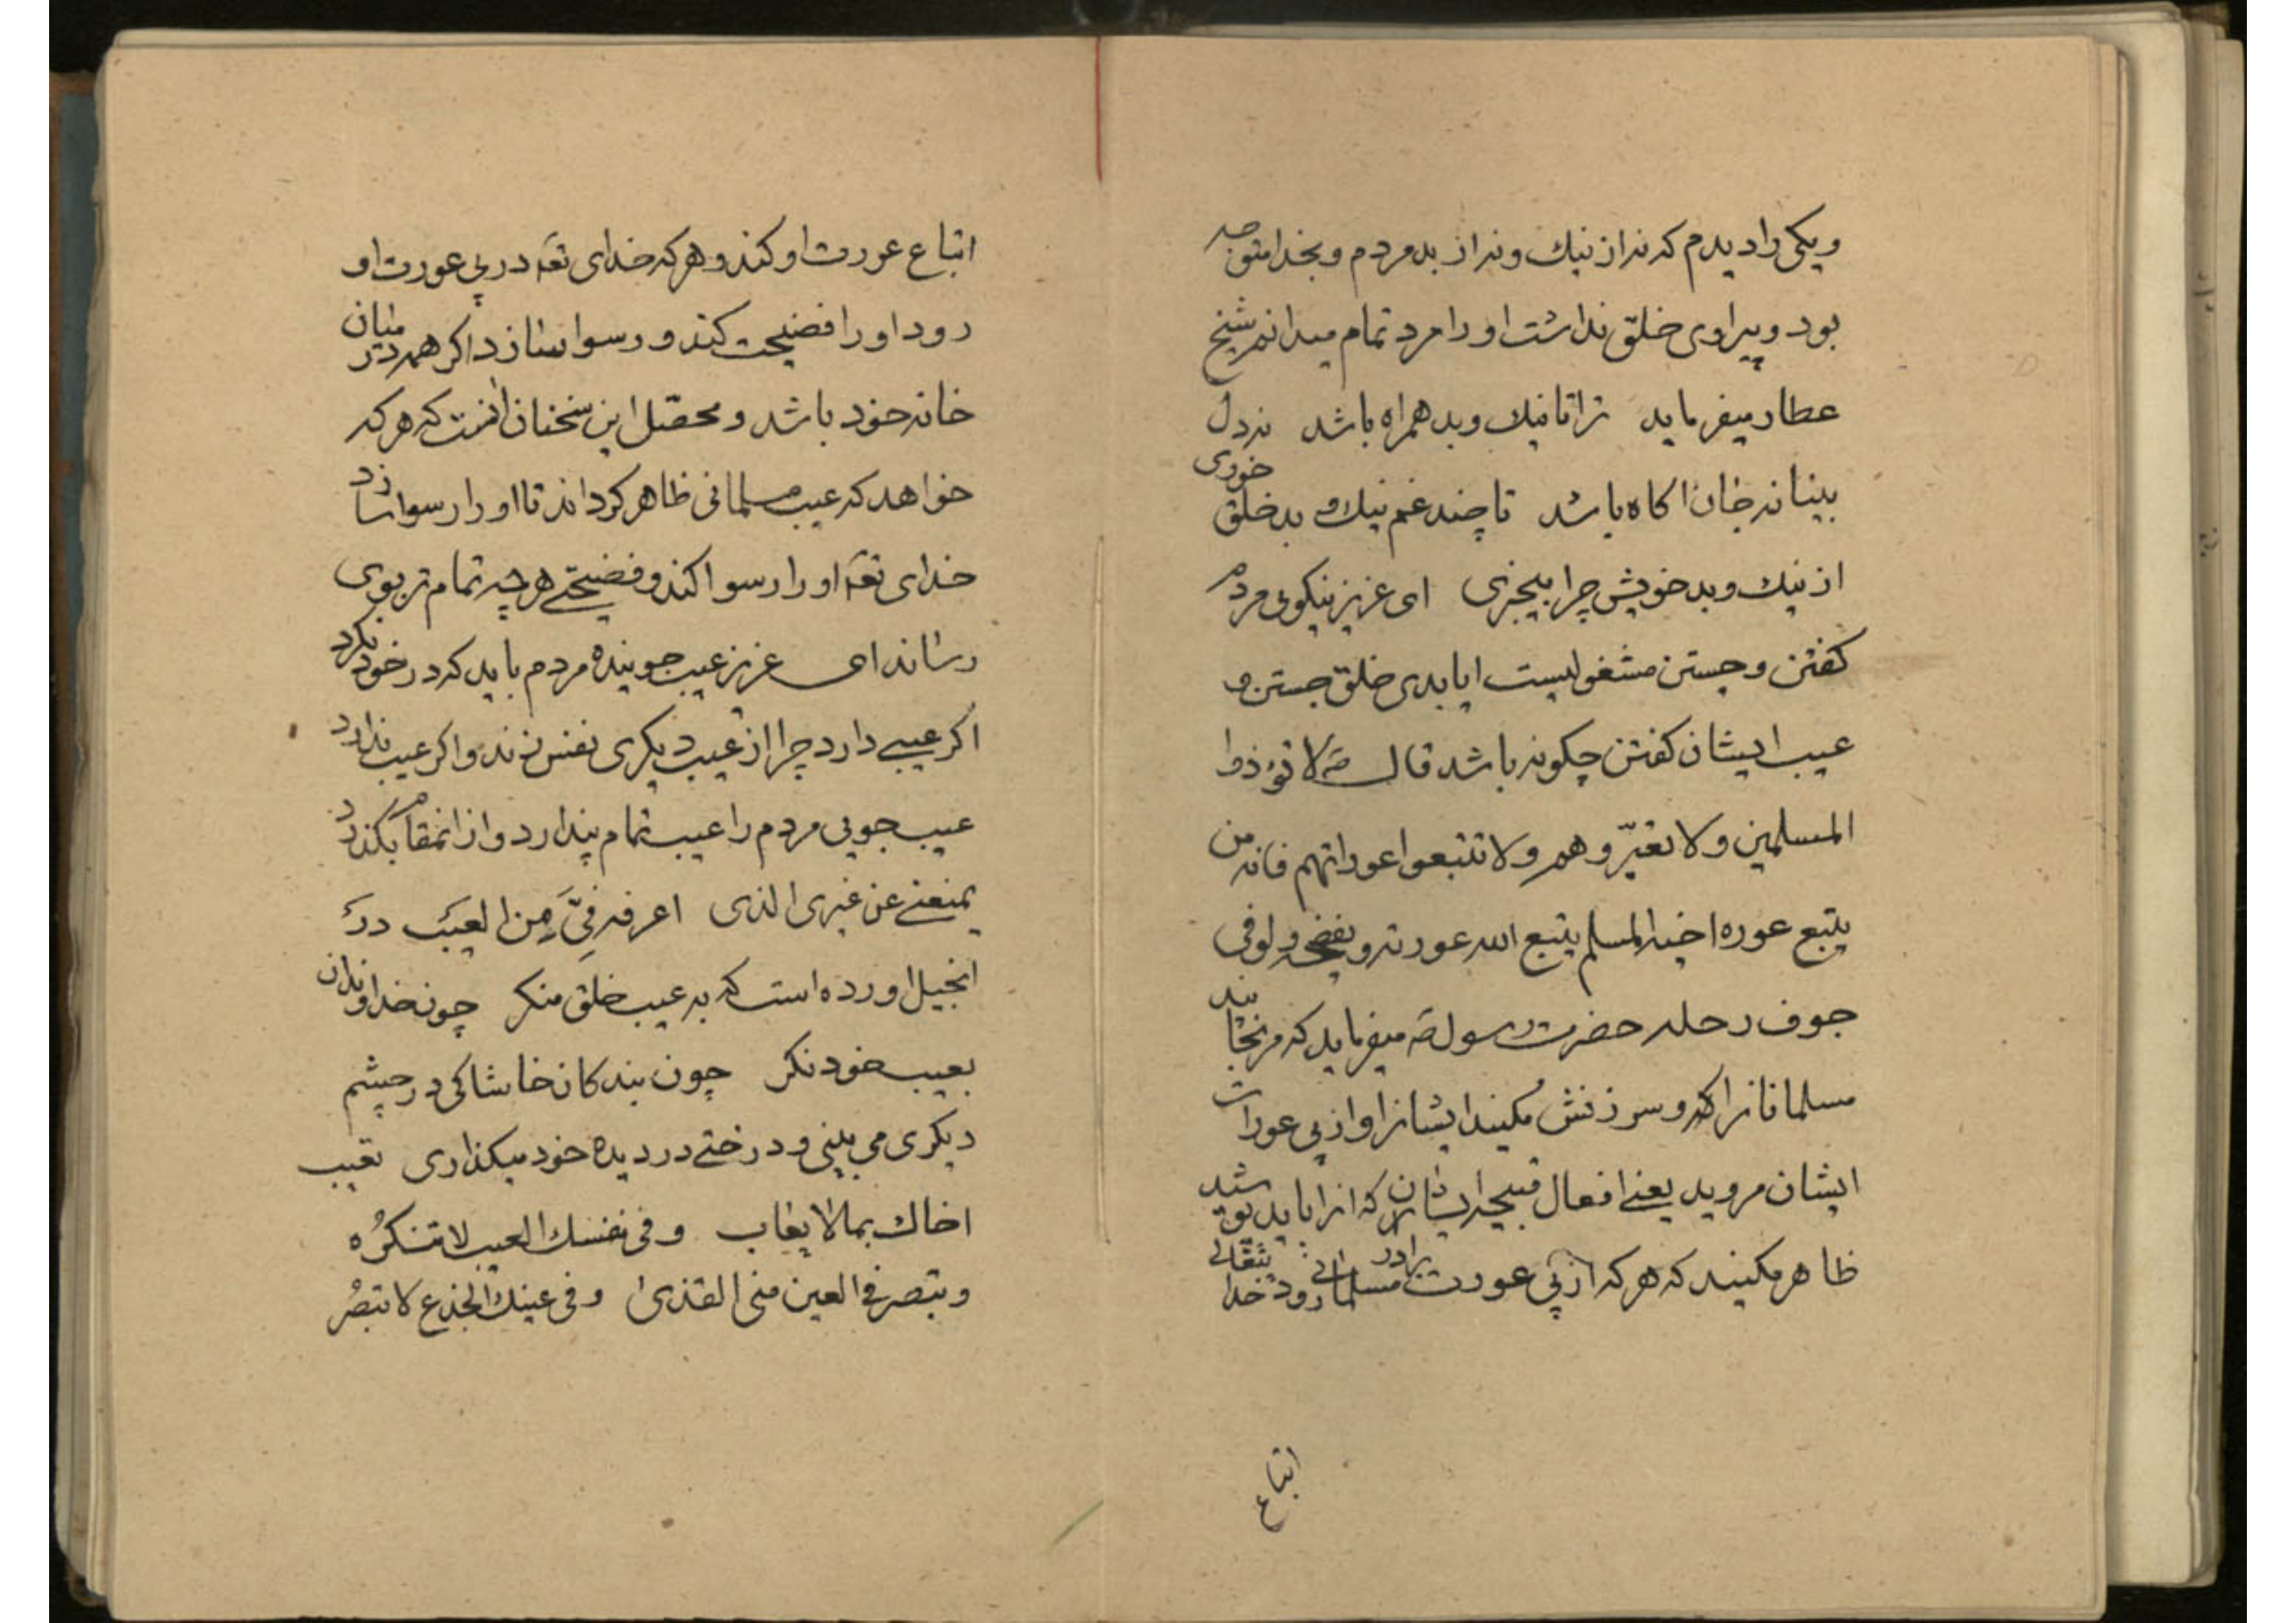 ویکی را دیدم که نه از نیک و نه از بد مردم و بخدا متوجه
بود و پیراوی خلق نداشت او را مرد تمام میدانم شیخ
عطار میفرماید ترا تا نیک و بد همراه باشد نه دل
بینا نه جان اکاه باشد تا چند غم نیک و بد خلق خوری
از نیک و بد خویش چرا بیخبری ای عزیز نیکوی مردم
کفتن و جستن مشغولیست ایا بدی خلق جستن و
عیب ایشان کفتن چکونه باشد قال ص لا تؤذوا
المسلمین ولا تغیّروهم ولا تتبعوا عوراتهم فانه من
یتبع عوره اخیه المسلم یتبع الله عورته و یفضحه ولو فی
جوف رحله حضرت رسول ص میفرماید که مرنجانید
مسلمانانرا و سرزنش مکنید ایشانرا و از پی عورات
ایشان مروید یعنے افعال قبیحه ایشان که انرا باید پوشید
ظاهر مکنید که هر که از پی عورت برادر مسلمانی رود خدا تعالی
اتباع
اتباع عورت او کند و هر که خدای تعه در پی عورت او
رود او را فضیحت کند و رسوا سازد اکر همه در میان
خانه خود باشد و محصّل این سخنان انست که هر که
خواهد که عیب مسلمانی ظاهر کرداند تا او را رسوا سازد
خدای تعه او را رسوا کند و فضیحتے هر چه تمام تر بوی
رساند ای عزیز عیب جوینده مردم باید که در خود نکرد
اکر عیبے دارد چرا از عیب دیکری نفس زند و اکر عیب ندارد
عیب جویی مردم را عیب تمام پندارد و از انمقام بکذرد
یمنعنے عن غیری الذی اعرفه فِیَّ مِن العیب در
انجیل اورده است که به عیب خلق منکر چون خداوندان
بعیب خود نکر چون بندکان خاشاکی در چشم
دیکری می بینی و درختے در دیده خود میکذاری تعیب
اخاك بما لا یعاب و فی نفسك العیب لا تنکرُه
و تبصر فی العین منی القذی و فی عینك الجذع لا تبصُر